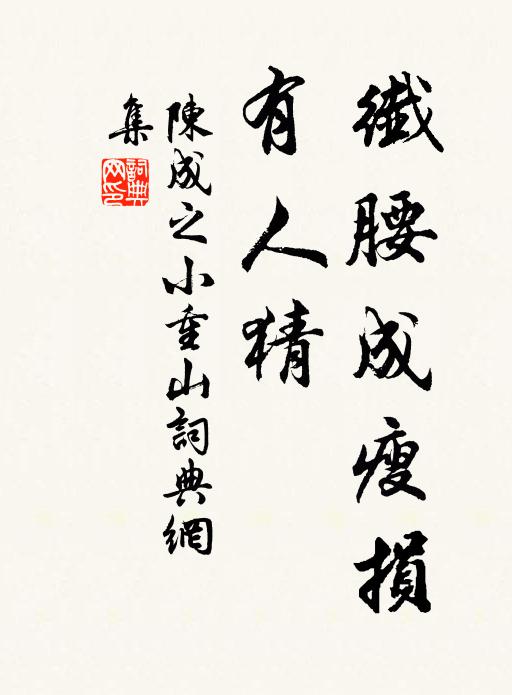 纖腰成瘦損
有人猜
陳成之小重山詞典網
集
詞典網印